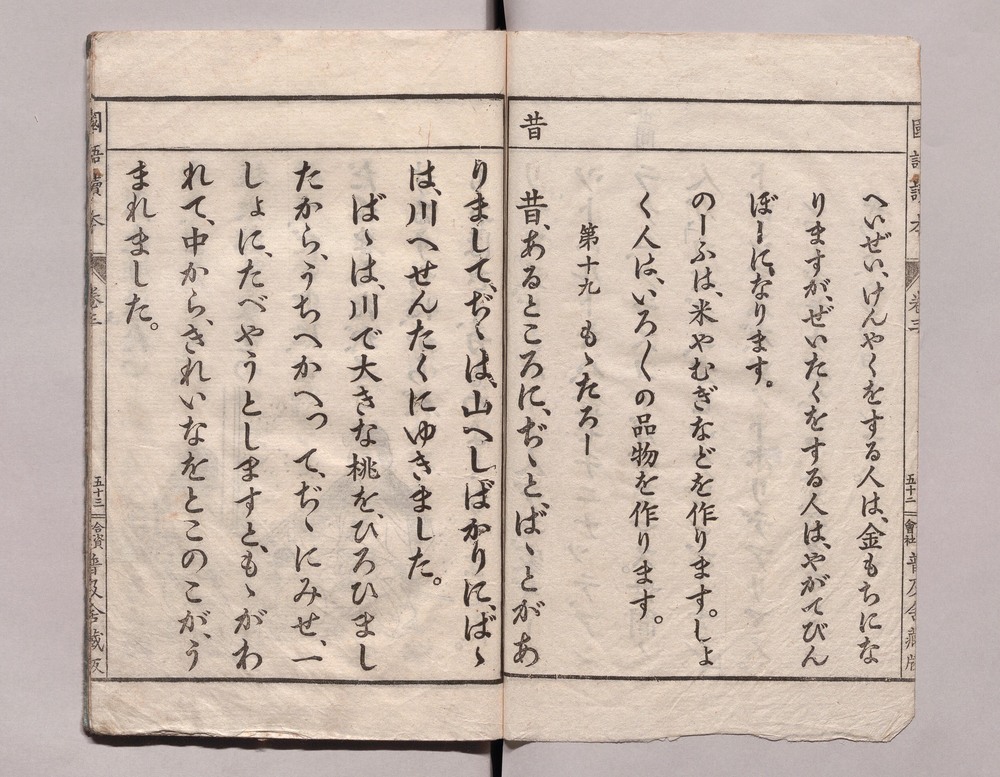 國語讀本
卷三
五十二
會社
普及舍藏版
へいぜい、けんやくをする人は、金もちにな
りますが、ぜいたくをする人は、やがてびん
ぼーに、なります。
のーふは、米やむぎなどを作ります。しょ
く人は、いろ〱の品物を作ります。
第十九 もゝたろー
昔
昔、あるところに、ぢゝと、ばゝとがあ
りまして、ぢゝは、山へしばかりに、ばゝ
は、川へせんたくにゆきました。
ばゝは、川で大きな桃を、ひろひまし
たから、うちへかへって、ぢゝにみせ、一
しょに、たべやうとしますと、もゝがわ
れて、中から、きれいなをとこのこが、う
まれました。
國語讀本
卷三
五十三
合資
普及舍藏版